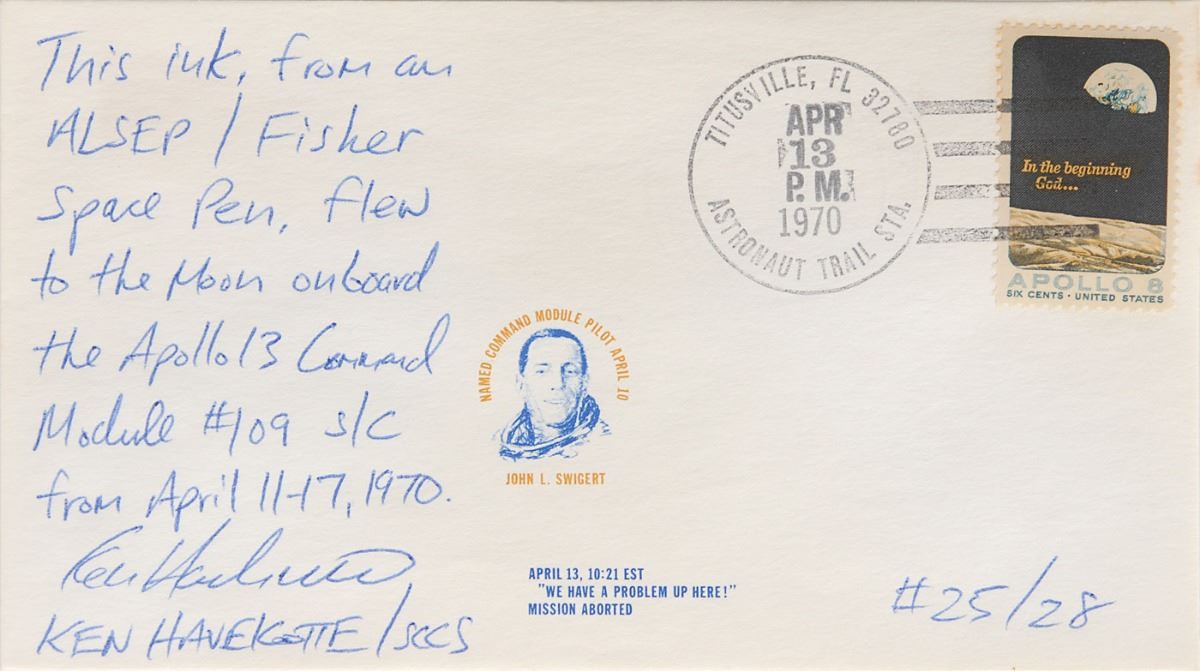 This ink, from an
ALSEP / Fisher
Space Pen, flew
to the Moon onboard
the Apollo 13 Command
Module #109 S/C
from April 11-17, 1970.
Ken Havekotte
KEN HAVEKOTTE/SCCS
TITUSVILLE, FL 32780
APR
13
P.M.
1970
ASTRONAUT TRAIL STA.
In the beginning
God...
APOLLO 8
SIX CENTS · UNITED STATES
NAMED COMMAND MODULE PILOT APRIL 10
JOHN L. SWIGERT
APRIL 13, 10:21 EST
"WE HAVE A PROBLEM UP HERE!"
MISSION ABORTED
#25/28